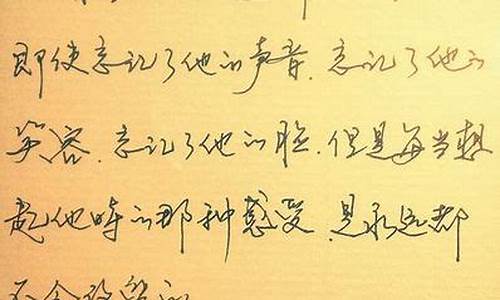 即使忘记了他的声音，忘记了他的
笑容，忘记了他的脸，但是每当想
起他时的那种感受，是永远都
不会改变的